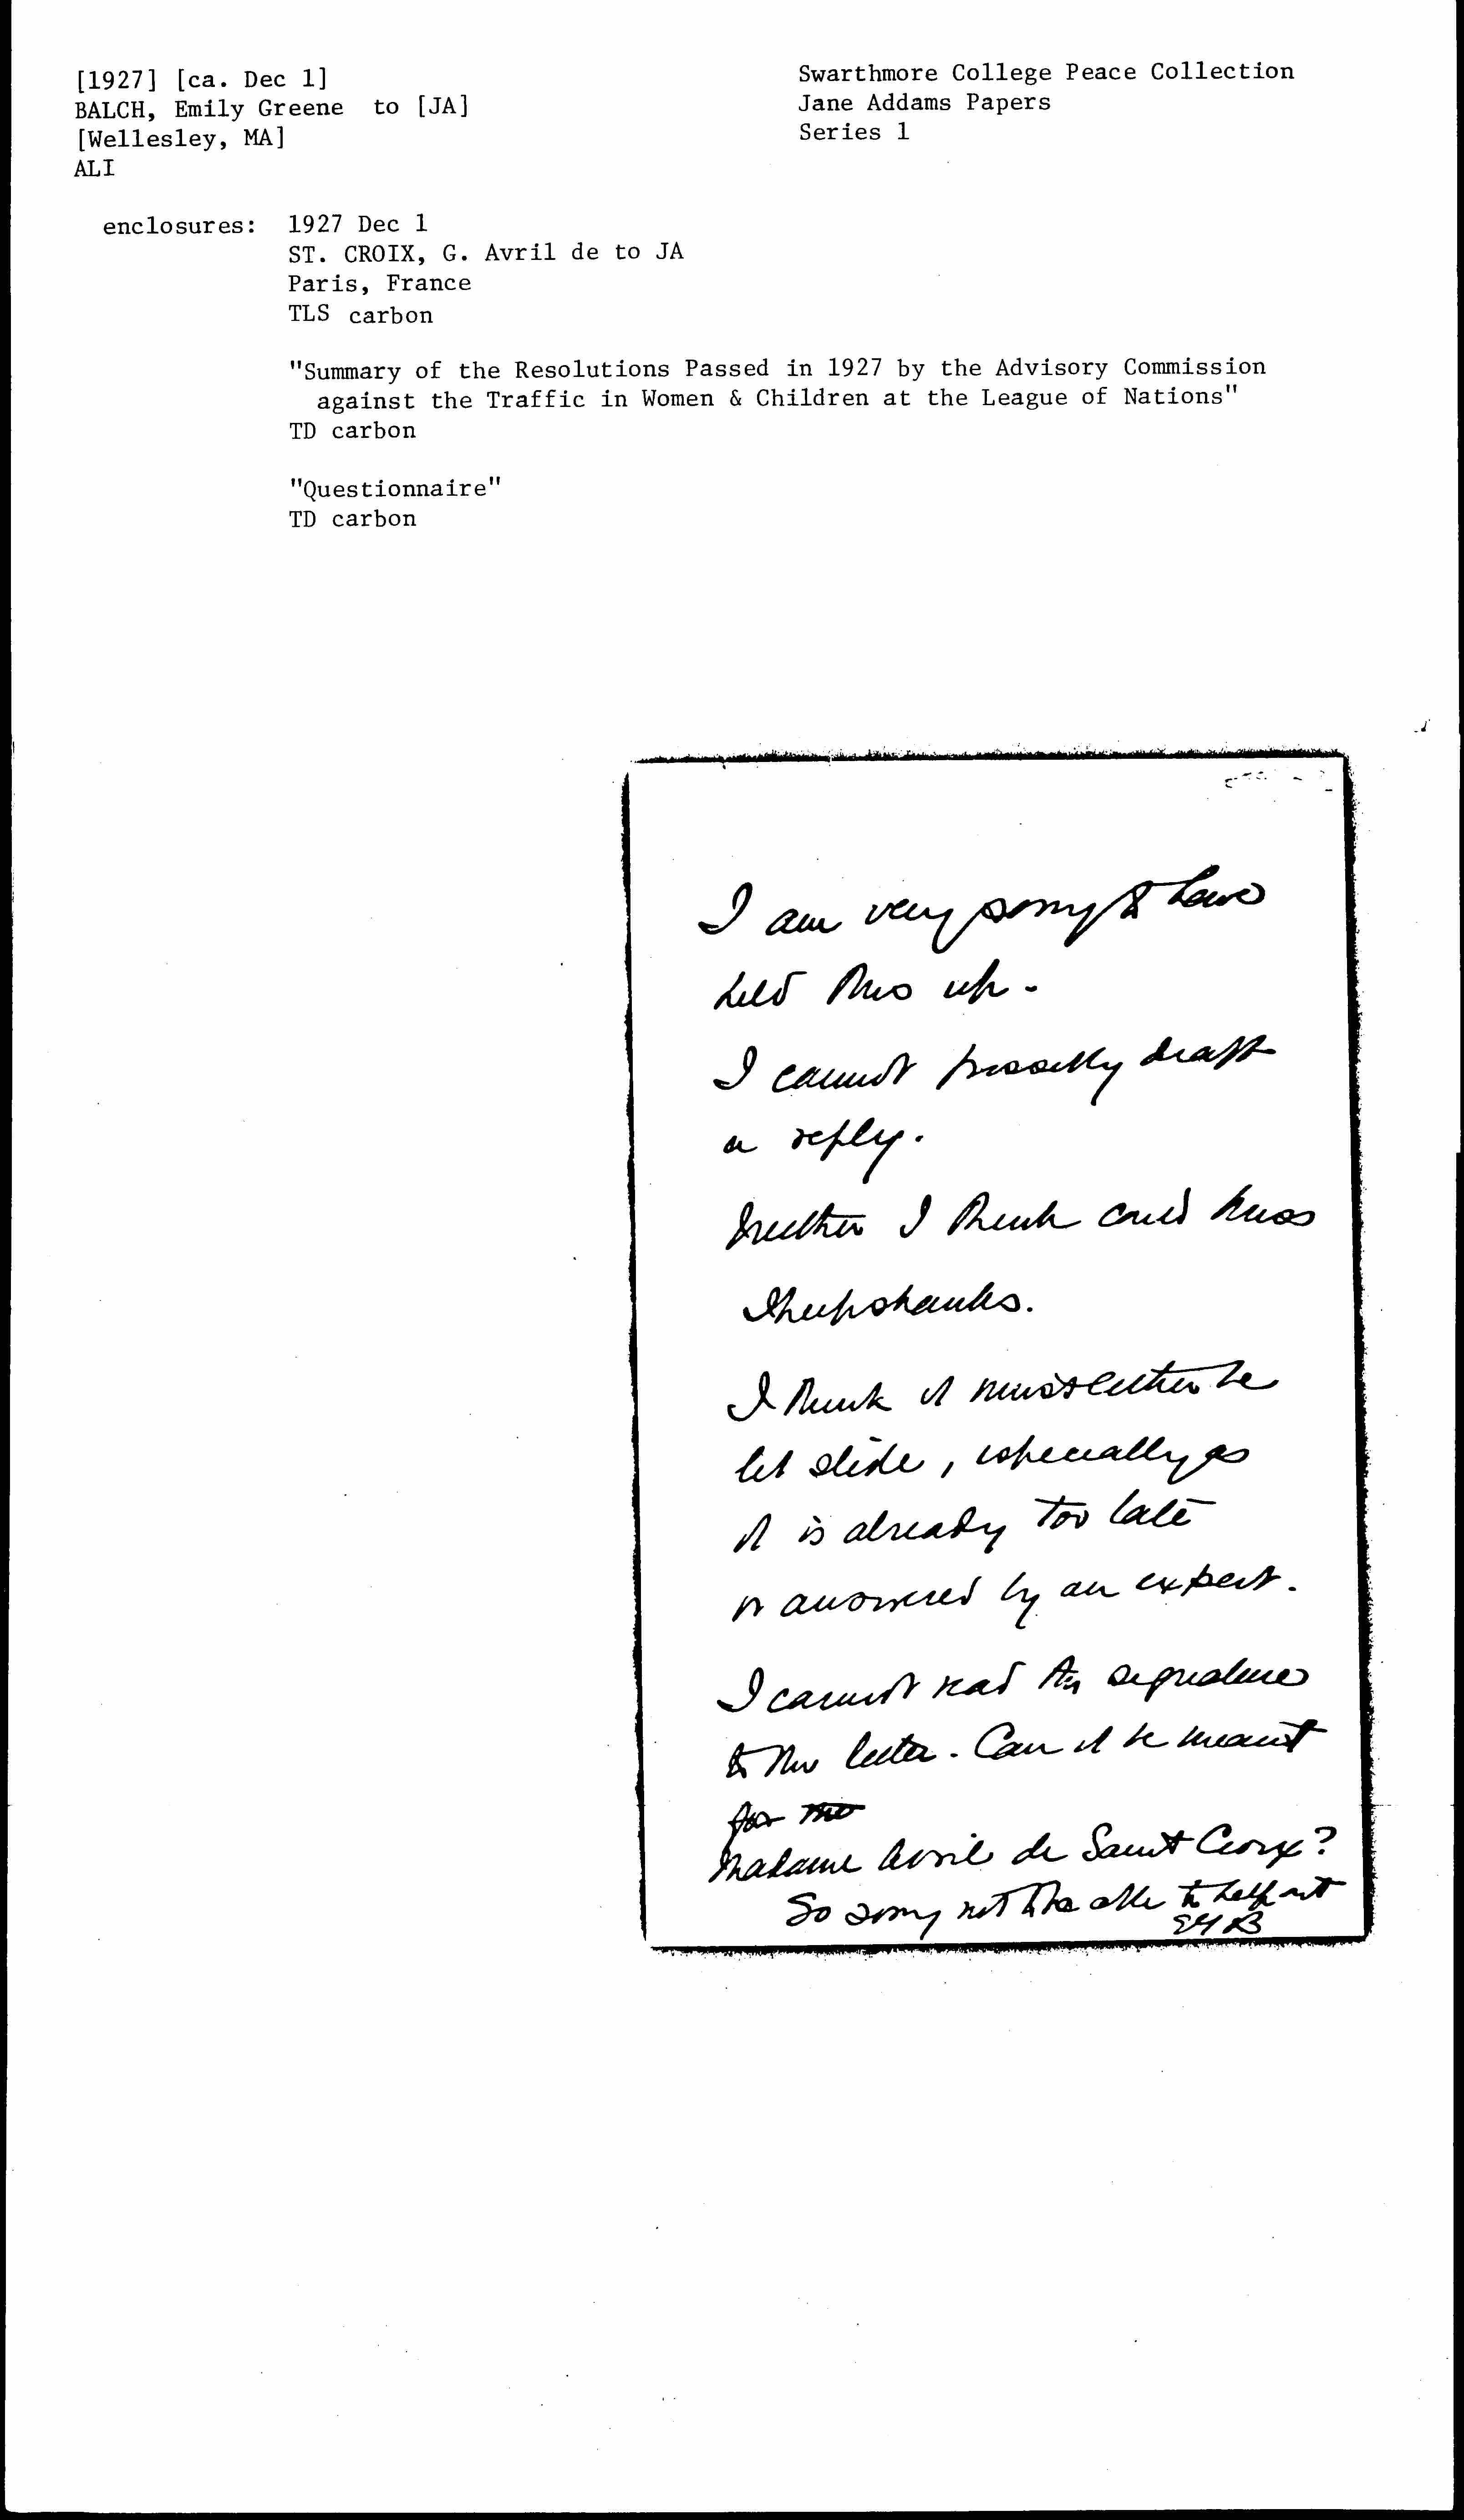 [1927] [ca. Dec 1]
BALCH, Emily Greene to [JA]
[Wellesley, MA]
ALI
Swarthmore College Peace Collection
Jane Addams Papers
Series 1
enclosures: 1927 Dec 1
ST. CROIX, G. Avril de to JA
Paris, France
TLS carbon
"Summary of the Resolutions Passed in 1927 by the Advisory Commission
against the Traffic in Women & Children at the League of Nations"
TD carbon
"Questionnaire"
TD carbon
I am very sorry to have
held this up -
I cannot possibly draft
a reply.
Neither I think could Miss
Sheepshanks.
I think it must either be
let slide, especially as
it is already too late
or answered by an expert.
I cannot read the signature
to the letter. Can it be meant
for the
Madame Avril de Saint Croix?
So sorry not to be able to help out
EGB